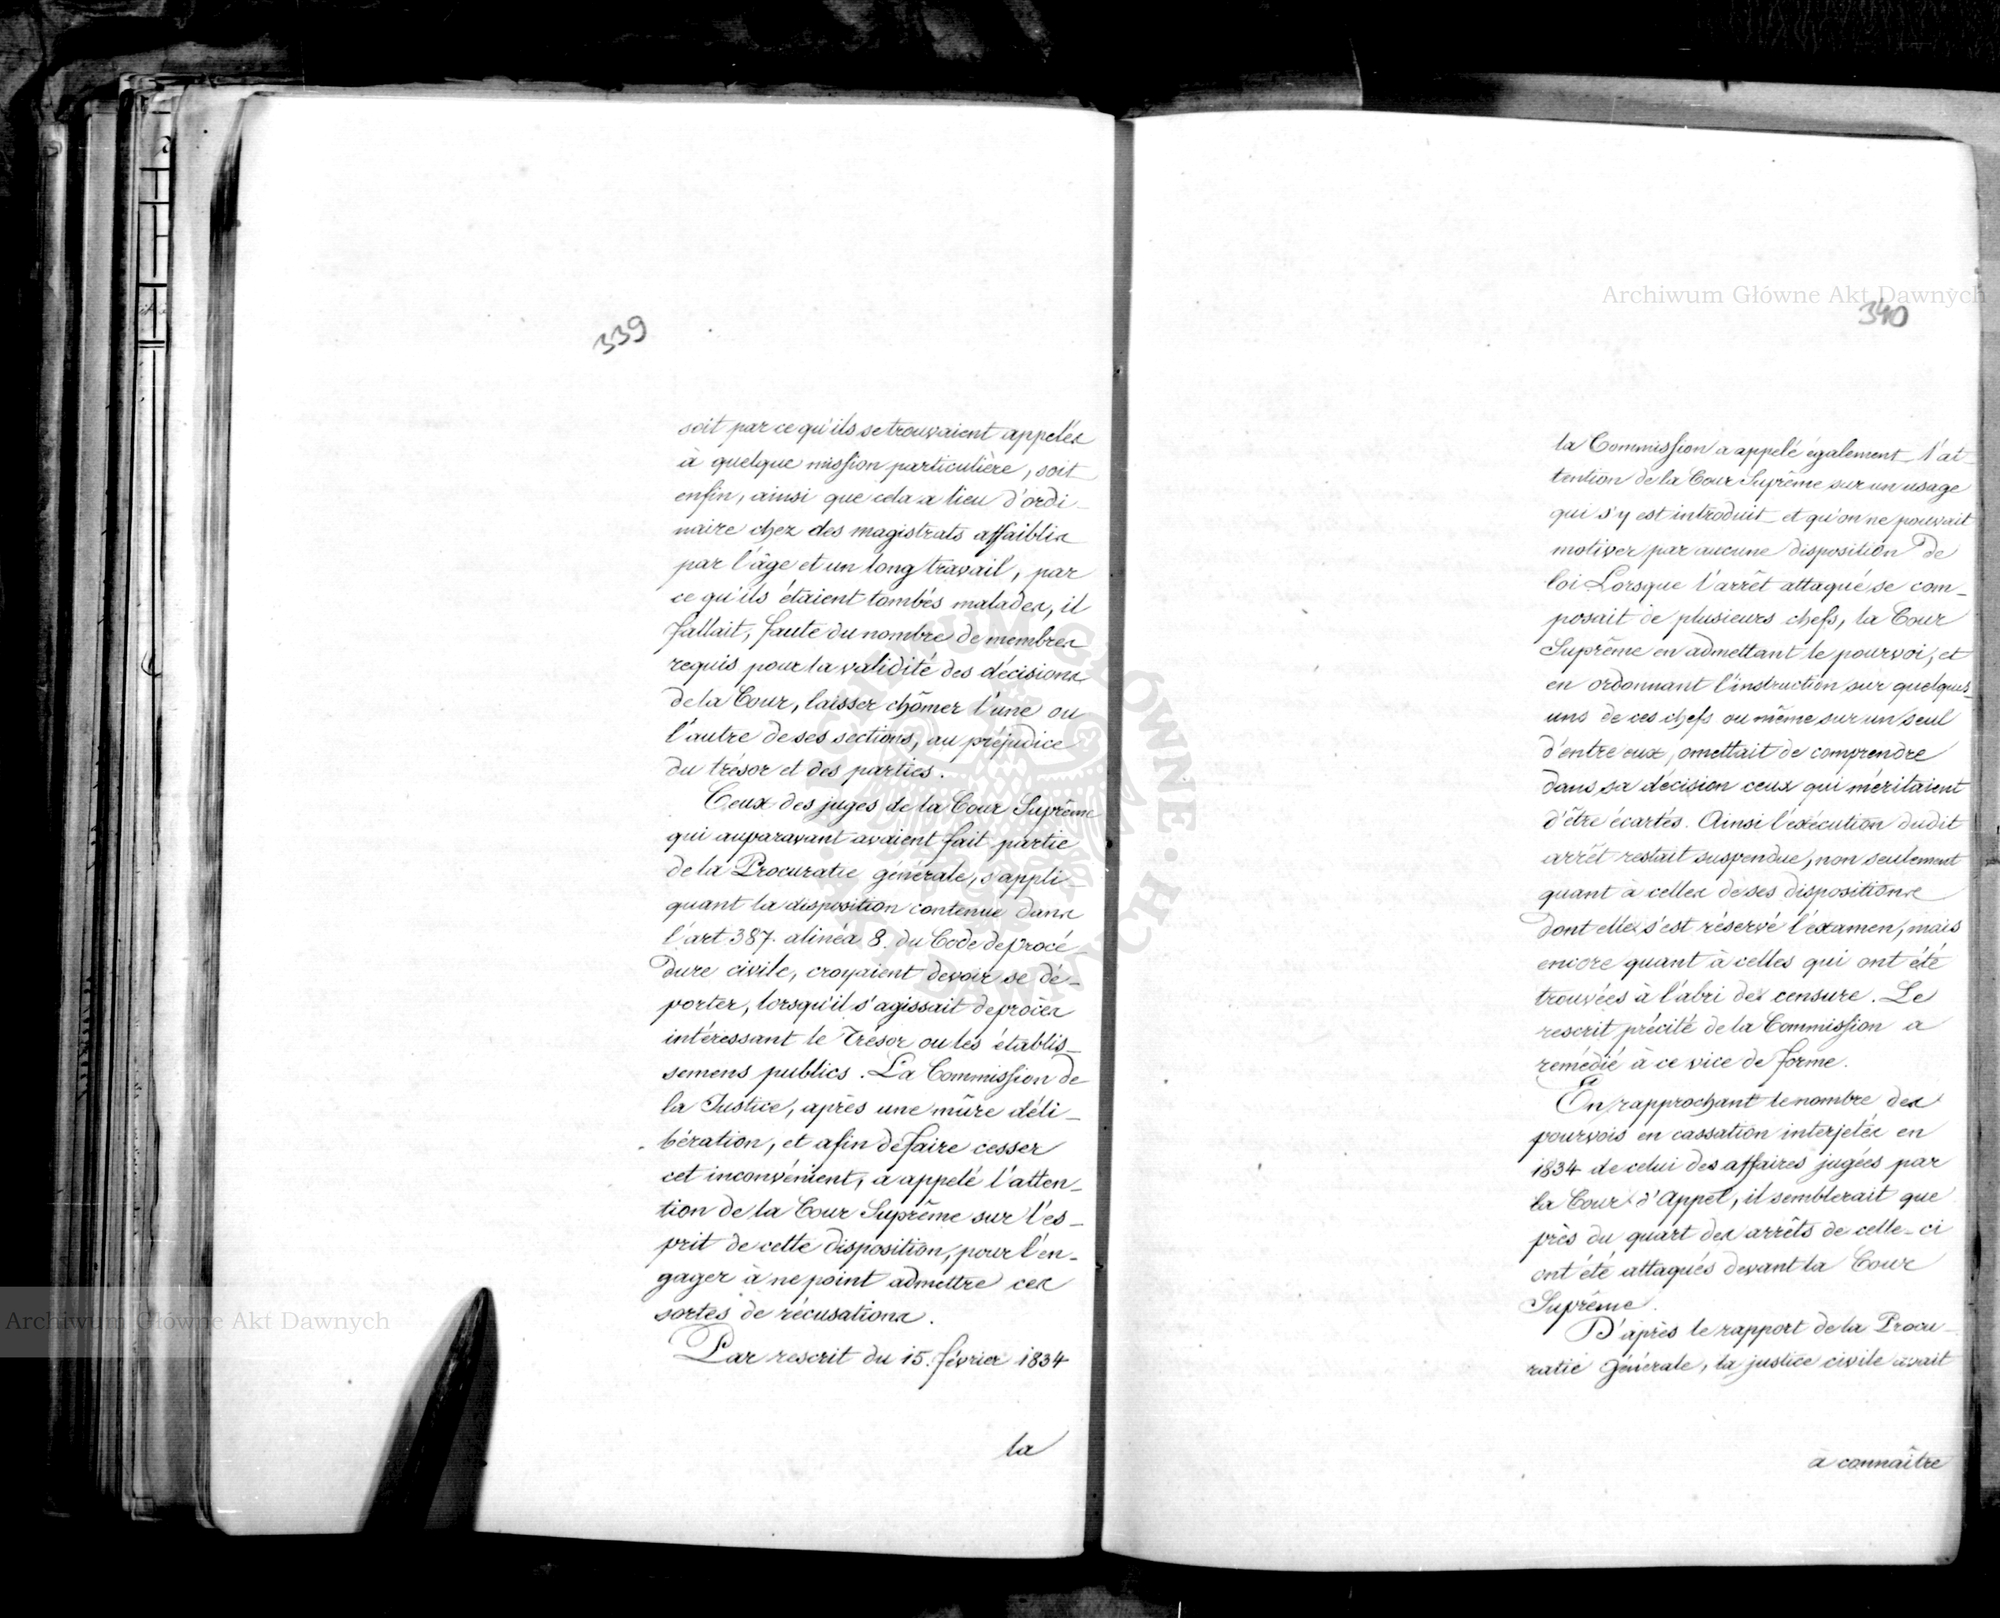 339
soit par ce qu'ils se trouvaient appelés
à quelque mission particulière, soit
enfin, ainsi que cela a lieu d'ordi-
naire chez des magistrats affaiblis
par l'âge et un long travail, par
ce qu'ils étaient tombés malades, il
fallait, faute du nombre de membres
requis pour la validité des décisions
de la Cour, laisser chômer l'une ou
l'autre de ses sections, au préjudice
du trésor et des parties.
Ceux des juges de la Cour Suprême
qui auparavant avaient fait partie
de la Procuratie générale, s'appli-
quant la disposition contenue dans
l'art 387. alinéa 8. du Code de procé-
dure civile, croyaient devoir se dé-
porter, lorsqu'il s'agissait de procès
intéressant le Trésor ou les établis-
semens publics. La Commission de
la Justice, après une mûre déli-
bération, et afin de faire cesser
cet inconvénient, a appelé l'atten-
tion de la Cour Suprême sur l'es-
prit de cette disposition, pour l'en-
gager à ne point admettre ces
sortes de récusations.
Par rescrit du 15. février 1834
la
340
la Commission a appelé également l'at-
tention de la Cour Suprême sur un usage
qui s'y est introduit et qu'on ne pouvait
motiver par aucune disposition de
loi Lorsque l'arrêt attaqué se com-
posait de plusieurs chefs, la Cour
Suprême en admettant le pourvoi, et
en ordonnant l'instruction sur quelques-
uns de ces chefs ou même sur un seul
d'entre eux, omettait de comprendre
dans sa décision ceux qui méritaient
d'être écartés. Ainsi l'exécution dudit
arrêt restait suspendue, non seulement
quant à celles de ses dispositions
dont elle s'est réservé l'examen, mais
encore quant à celles qui ont été
trouvées à l'abri de censure. Le
rescrit précité de la Commission a
remédié à ce vice de forme.
En rapprochant le nombre des
pourvois en cassation interjetés en
1834 de celui des affaires jugées par
la Cour d'Appel, il semblerait que
près du quart des arrêts de celle-ci
ont été attaqués devant la Cour
Suprême.
D'après le rapport de la Procu-
ratie Générale, la justice civile avait
à connaître
Archiwum Główne Akt Dawnych
Archiwum Główne Akt Dawnych